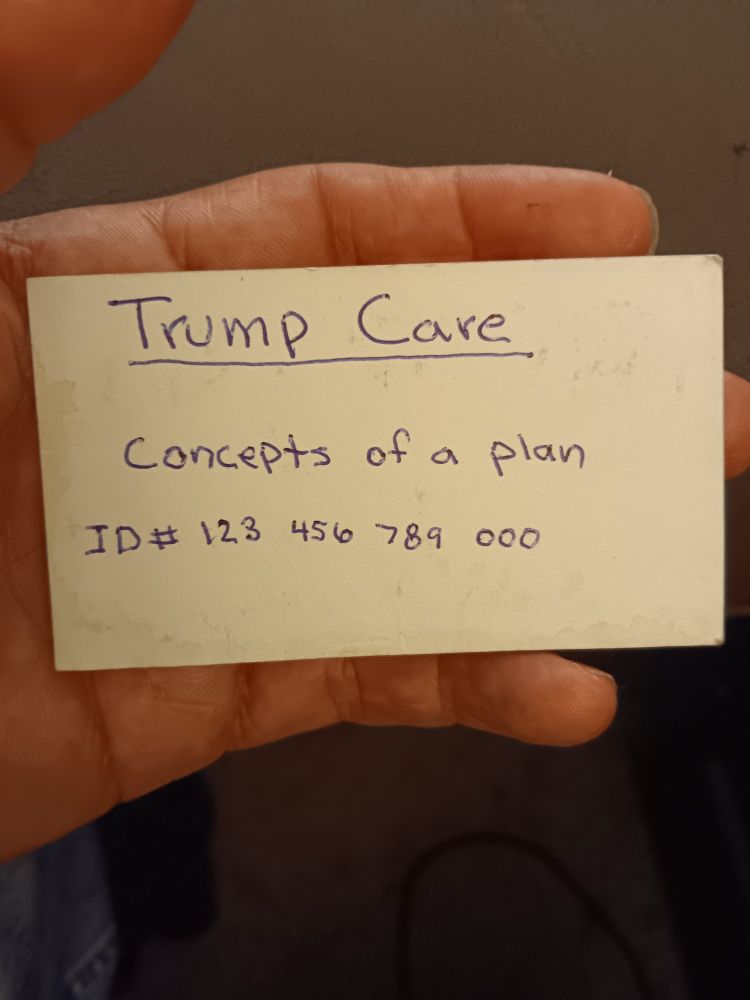 Trump Care
Concepts of a plan
ID# 123 456 789 000